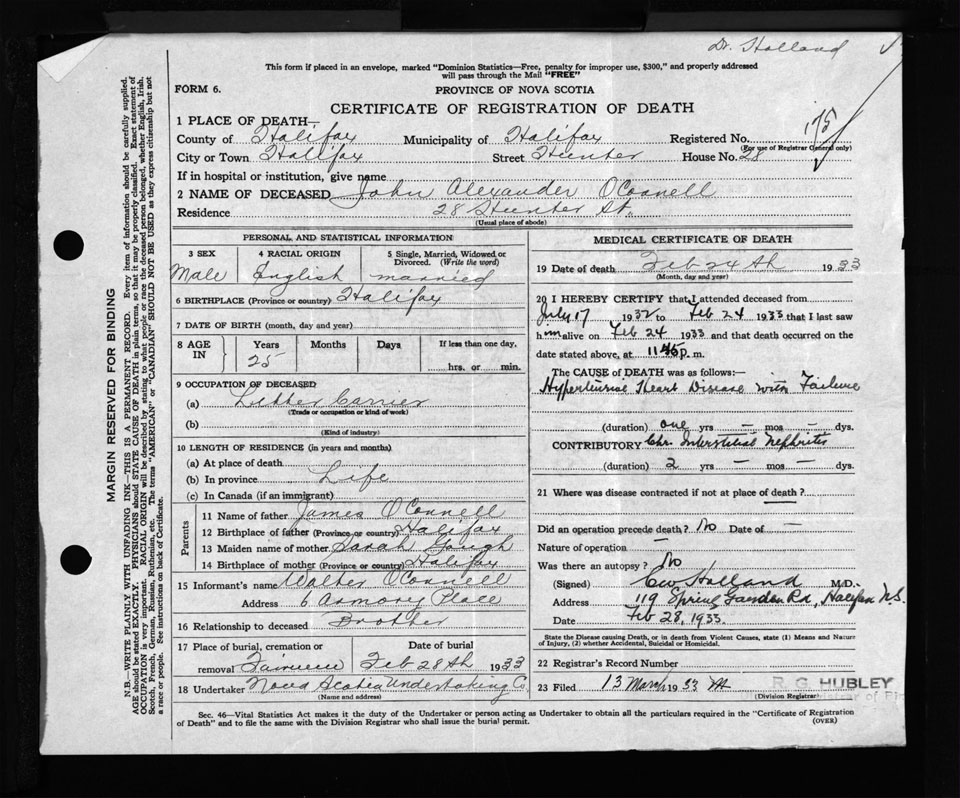 Dr. Holland
This form if placed in an envelope, marked "Dominion Statistics—Free, penalty for improper use, $300," and properly addressed
will pass through the Mail "FREE"
FORM 6.
PROVINCE OF NOVA SCOTIA
CERTIFICATE OF REGISTRATION OF DEATH
175
1 PLACE OF DEATH—
County of Halifax Municipality of Halifax Registered No.
(For use of Registrar General only)
City or Town Halifax Street Hunter House No. 28
If in hospital or institution, give name
2 NAME OF DECEASED John Alexander OConnell
Residence 28 Hunter St.
(Usual place of abode)
PERSONAL AND STATISTICAL INFORMATION
3 SEX 4 RACIAL ORIGIN 5 Single, Married, Widowed or
Divorced. (Write the word)
Male English married
6 BIRTHPLACE (Province or country) Halifax
7 DATE OF BIRTH (month, day and year)
8 AGE IN Years Months Days If less than one day,
25 hrs. or min.
9 OCCUPATION OF DECEASED
(a) Letter Carrier
(Trade or occupation or kind of work)
(b)
(Kind of industry)
10 LENGTH OF RESIDENCE (in years and months)
(a) At place of death
(b) In province Life
(c) In Canada (if an immigrant)
Parents
11 Name of father James OConnell
12 Birthplace of father (Province or country) Halifax
13 Maiden name of mother Sarah Gough
14 Birthplace of mother (Province or country) Halifax
15 Informant's name Walter OConnell
Address 6 Armory Place
16 Relationship to deceased Brother
17 Place of burial, cremation or Date of burial
removal Feb 28th 1933
18 Undertaker Nova Scotia Undertaking Co
(Name and address)
MEDICAL CERTIFICATE OF DEATH
19 Date of death Feb 24th 1933
(Month, day and year)
20 I HEREBY CERTIFY that I attended deceased from
July 17 1932 to Feb 24 1933 that I last saw
him alive on Feb 24 1933 and that death occurred on
date stated above, at 11.45 p. m.
The CAUSE of DEATH was as follows:
Hypertensive Heart Disease with Failure
(duration) one yrs — mos — dys.
CONTRIBUTORY Chr. Interstitial Nephritis
(duration) 2 yrs — mos — dys.
21 Where was disease contracted if not at place of death?
Did an operation precede death? No Date of —
Nature of operation —
Was there an autopsy? No
(Signed) CW Holland M.D.
Address 119 Spring Garden Rd, Halifax N.S.
Date Feb 28, 1933.
State the Disease causing Death, or in death from Violent Causes, state (1) Means and Nature
of Injury, (2) whether Accidental, Suicidal or Homicidal.
22 Registrar's Record Number
23 Filed 13 March 1933 R. G. HUBLEY
(Division Registrar)
Sec. 46—Vital Statistics Act makes it the duty of the Undertaker or person acting as Undertaker to obtain all the particulars required in the "Certificate of Registration
of Death" and to file the same with the Division Registrar who shall issue the burial permit.
(OVER)
MARGIN RESERVED FOR BINDING
N.B.—WRITE PLAINLY WITH UNFADING INK—THIS IS A PERMANENT RECORD. Every item of information should be carefully supplied.
AGE should be stated EXACTLY. PHYSICIANS should STATE CAUSE OF DEATH in plain terms, so that it may be properly classified. Exact statement of
OCCUPATION is very important. RACIAL ORIGIN will be described by stating to what people or race the deceased person belonged, whether English, Irish,
Scotch, French, German, Russian, Ruthenian, etc. The terms "AMERICAN" or "CANADIAN" SHOULD NOT BE USED as they express citizenship but not
a race or people. See instructions on back of Certificate.